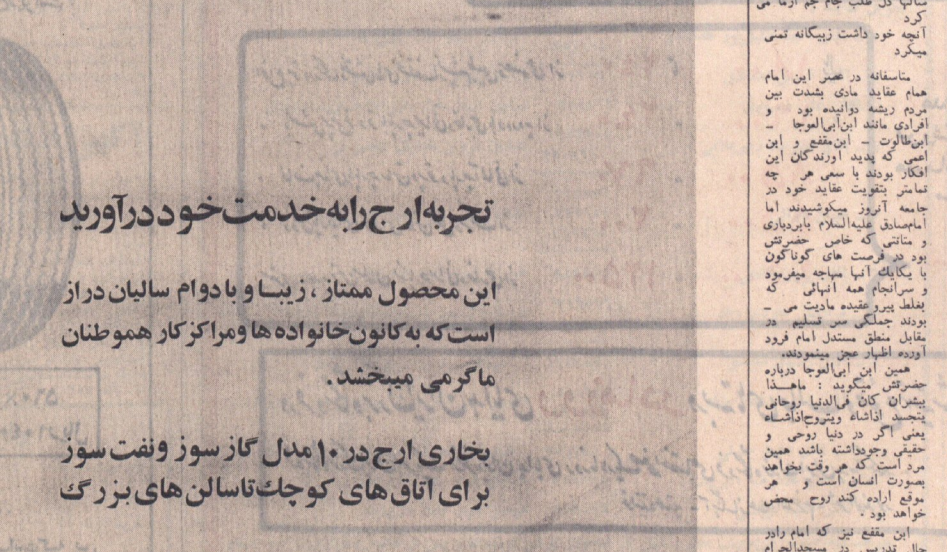 تجربه ارج را به خدمت خود درآورید
این محصول ممتاز ، زیبا و با دوام سالیان دراز
است که به کانون خانواده ها ومراکز کار هموطنان
ما گرمی میبخشد .
بخاری ارج در ۱۰ مدل گاز سوز ونفت سوز
برای اتاق های کوچك تا سالن های بزرگ
کرد
آنچه خود داشت زبیگانه تمنی
میکرد
متاسفانه در عصر این امام
همام عقاید مادی بشدت بین
مردم ریشه دوانیده بود و
افرادی مانند ابن‌ابی‌العوجا ـ
ابن‌طالوت ـ ابن‌مقفع و ابن
اعمی که پدید آورندگان این
افکار بودند با سعی هر چه
تمامتر بتقویت عقاید خود در
جامعه آنروز میکوشیدند اما
امام‌صادق علیه‌السلام بابردباری
و متانتی که خاص حضرتش
بود در فرصت های گوناگون
با یکایك آنها مباجه میفرمود
و سرانجام همه آنهائی که
بغلط پیرو عقیده مادیت می ـ
بودند جملگی سر تسلیم در
مقابل منطق مستدل امام فرود
آورده اظهار عجز مینمودند.
همین ابن ابی‌العوجا درباره
حضرتش میگوید : ماهـذا
ببشران کان فی‌الدنیا روحانی
یتجسد اذاشاء ویتروح‌اذاشـاء
یعنی اگر در دنیا روحی و
حقیقی وجودداشته باشد همین
مرد است که هر وقت بخواهد
بصورت انسان است و هر
موقع اراده کند روح محض
خواهد بود .
ابن مقفع نیز که امام رادر
حال تدریس در مسجدالحرام